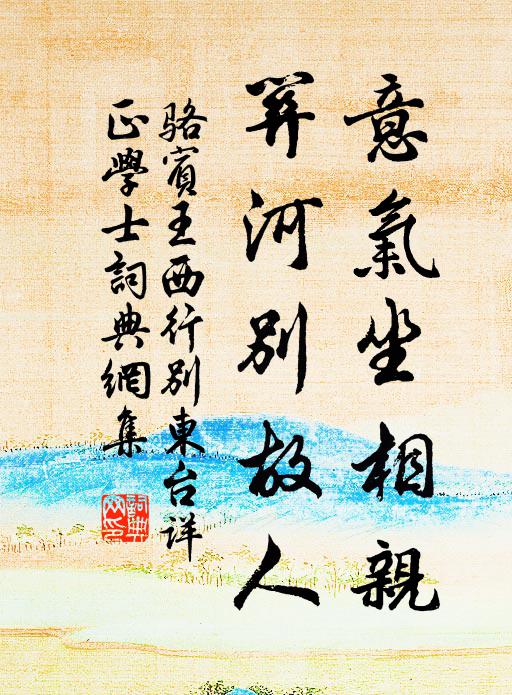 意氣坐相親
關河別故人
駱賓王西行別東台詳
正學士詞典網集
詞典